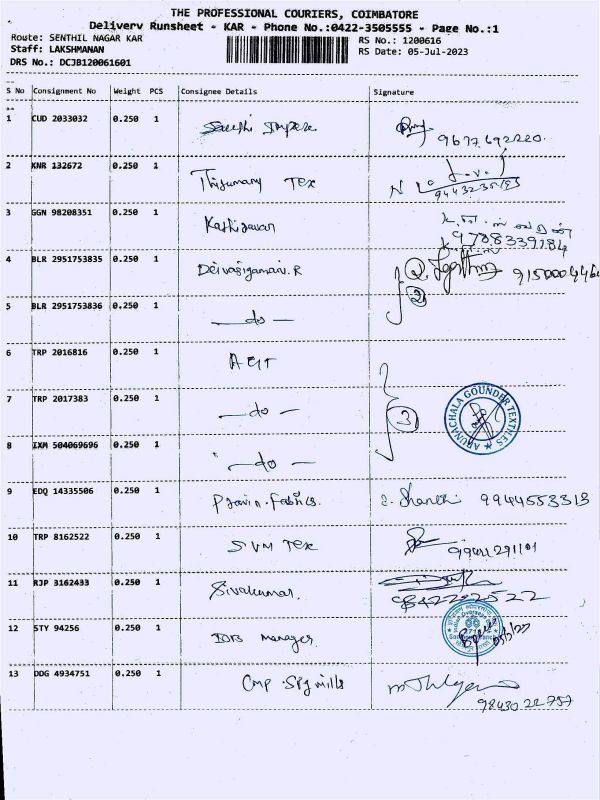 THE PROFESSIONAL COURIERS, COIMBATORE
Delivery Runsheet - KAR - Phone No.:0422-3505555 - Page No.:1
Route: SENTHIL NAGAR KAR
RS No.: 1200616
Staff: LAKSHMANAN
RS Date: 05-Jul-2023
DRS No.: DCJB120061601
S No Consignment No Weight PCS Consignee Details Signature
1 CUD 2033032 0.250 1
9677692220
2 KNR 132672 0.250 1 Thirumany Tex
3 GGN 98208351 0.250 1 Kathiravan
9788339184
4 BLR 2951753835 0.250 1 Deivasigamani.R
2
5 BLR 2951753836 0.250 1 - do -
6 TRP 2016816 0.250 1 AGT
7 TRP 2017383 0.250 1 - do -
3
ARUNACHALA GOUNDER TEXTILES
8 IXM 504069696 0.250 1 - do -
9 EDQ 14335506 0.250 1 Pravin Fabrics. Shanthi 9944553313
10 TRP 8162522 0.250 1 SVM Tex
11 RJP 3162433 0.250 1 Sivakumar.
12 STY 94256 0.250 1 IOB Manager
13 DDG 4934751 0.250 1 Cmp. Spg mills
9843022757